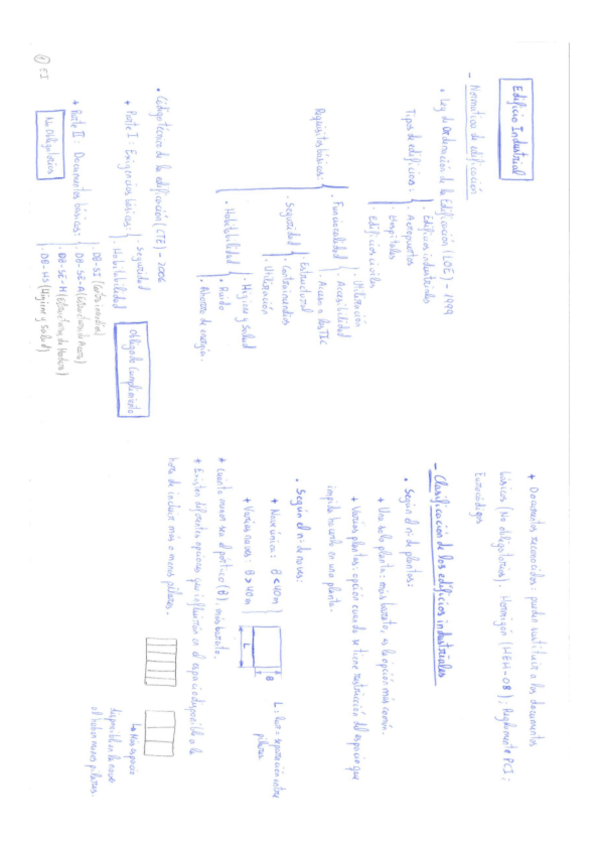 Edificio Industrial
- Normativa de edificación
• Ley de Ordenación de la Edificación (LOE) - 1999
Tipos de edificios:
· Edificios industriales
· Aeropuertos
· Hospitales
· Edificios civiles
Requisitos básicos:
· Funcionalidad
· Utilización
· Accesibilidad
· Acceso a las TIC
· Seguridad
· Estructural
· Contraincendios
· Utilización
· Habitabilidad
· Higiene y salud
· Ruido
· Ahorro de energía.
• Código técnico de la edificación (CTE) - 2006
+ Parte I: Exigencias básicas:
· Seguridad
· Habitabilidad
Obligado Cumplimiento
+ Parte II: Documentos básicos:
· DB-SI (Contra incendios)
· DB-SE-A (Estructuras de Acero)
· DB-SE-M (Estructuras de Madera)
· DB-HS (Higiene y Salud)
No Obligatorios
① EI
+ Documentos reconocidos: pueden sustituir a los documentos
básicos (No obligatorios). Hormigón (HEH-08); Reglamento PCI;
Eurocódigos
- Clasificación de los edificios industriales
• Según el nº de plantas:
+ Una sola planta: más barato, es la opción más común.
+ Varias plantas: opción cuando se tiene restricción del espacio que
impide hacerlo en una planta.
• Según el nº de naves:
+ Nave única: B < 40m
+ Varias naves: B > 40m
B
L
L: Luz = separación entre
pilares.
+ Cuanto menor sea el pórtico (B), más barato.
+ Existen diferentes opciones que influirán en el espacio disponible a la
hora de incluir más o menos pilares.
↳ Más espacio
disponible en la nave
al haber menos pilares.